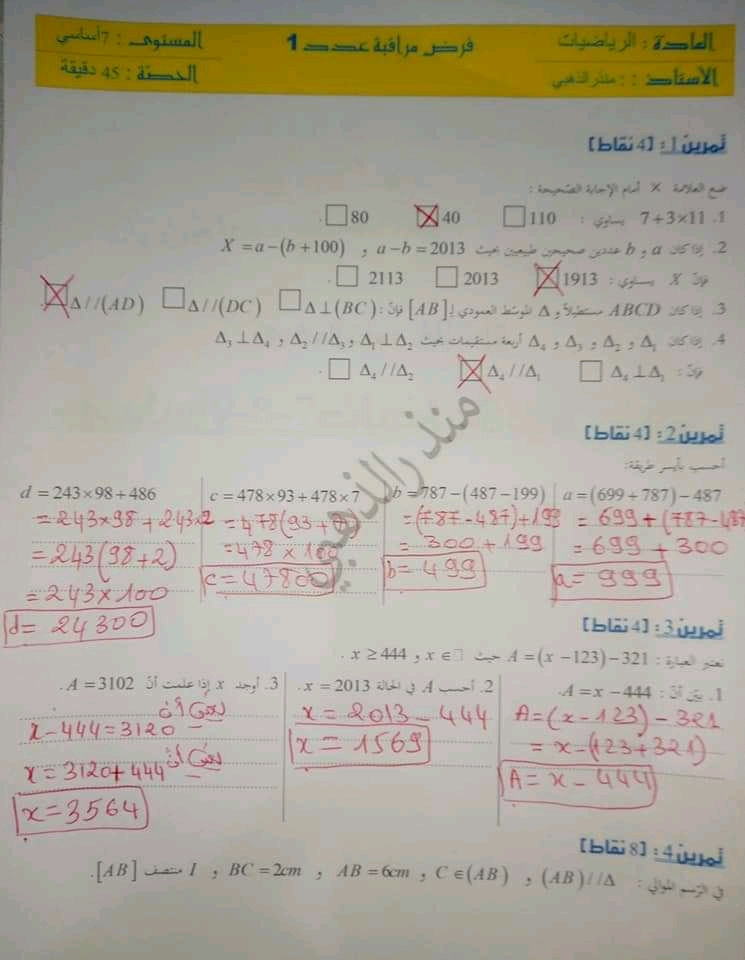 المادة : الرياضيات
فرض مراقبة عدد 1
المستوى : 7 أساسي
الأستاذ : : منذر الذهبي
الحصة : 45 دقيقة
تمرين 1: [4 نقاط]
ضع العلامة × أمام الإجابة الصحيحة :
1. 7+3×11 يساوي : □ 110 ☒ 40 □ 80 .
2. إذا كان a و b عددين صحيحين طبيعيين بحيث a-b=2013 , X=a-(b+100)
فإنّ X يساوي : ☒ 1913 □ 2013 □ 2113 .
3. إذا كان ABCD مستطيلا و Δ الموسّط العمودي لـ [AB] فإنّ : □ Δ⊥(BC) □ Δ//(DC) ☒ Δ//(AD)
4. إذا كان Δ₁ و Δ₂ و Δ₃ و Δ₄ أربعة مستقيمات بحيث Δ₁⊥Δ₂ و Δ₂//Δ₃ و Δ₃⊥Δ₄
فإنّ : □ Δ₄⊥Δ₁ ☒ Δ₄//Δ₁ □ Δ₄//Δ₂ .
منذر الذهبي
تمرين 2: [4 نقاط]
أحسب بأيسر طريقة:
a=(699+787)-487
= 699+(787-487
= 699 + 300
a= 999
b=787-(487-199)
=(787-487)+199
= 300 + 199
b= 499
c=478×93+478×7
=478(93+7)
=478 × 100
c=47800
d=243×98+486
=243×98+243×2
=243(98+2)
=243×100
d= 24300
تمرين 3: [4 نقاط]
نعتبر العبارة : A=(x-123)-321 حيث x∈□ و x≥444 .
1. بيّن أنّ : A=x-444.
A=(x-123)-321
= x-(123+321)
A= x-444
2. أحسب A في الحالة x=2013 .
x=2013-444
x= 1569
3. أوجد x إذا علمت أنّ A=3102 .
يعني أن
x-444=3120
يعني أن
x=3120+444
x=3564
تمرين 4: [8 نقاط]
في الرّسم الموالي : (AB)//Δ , C∈(AB) , AB=6cm , BC=2cm , I منتصف [AB].